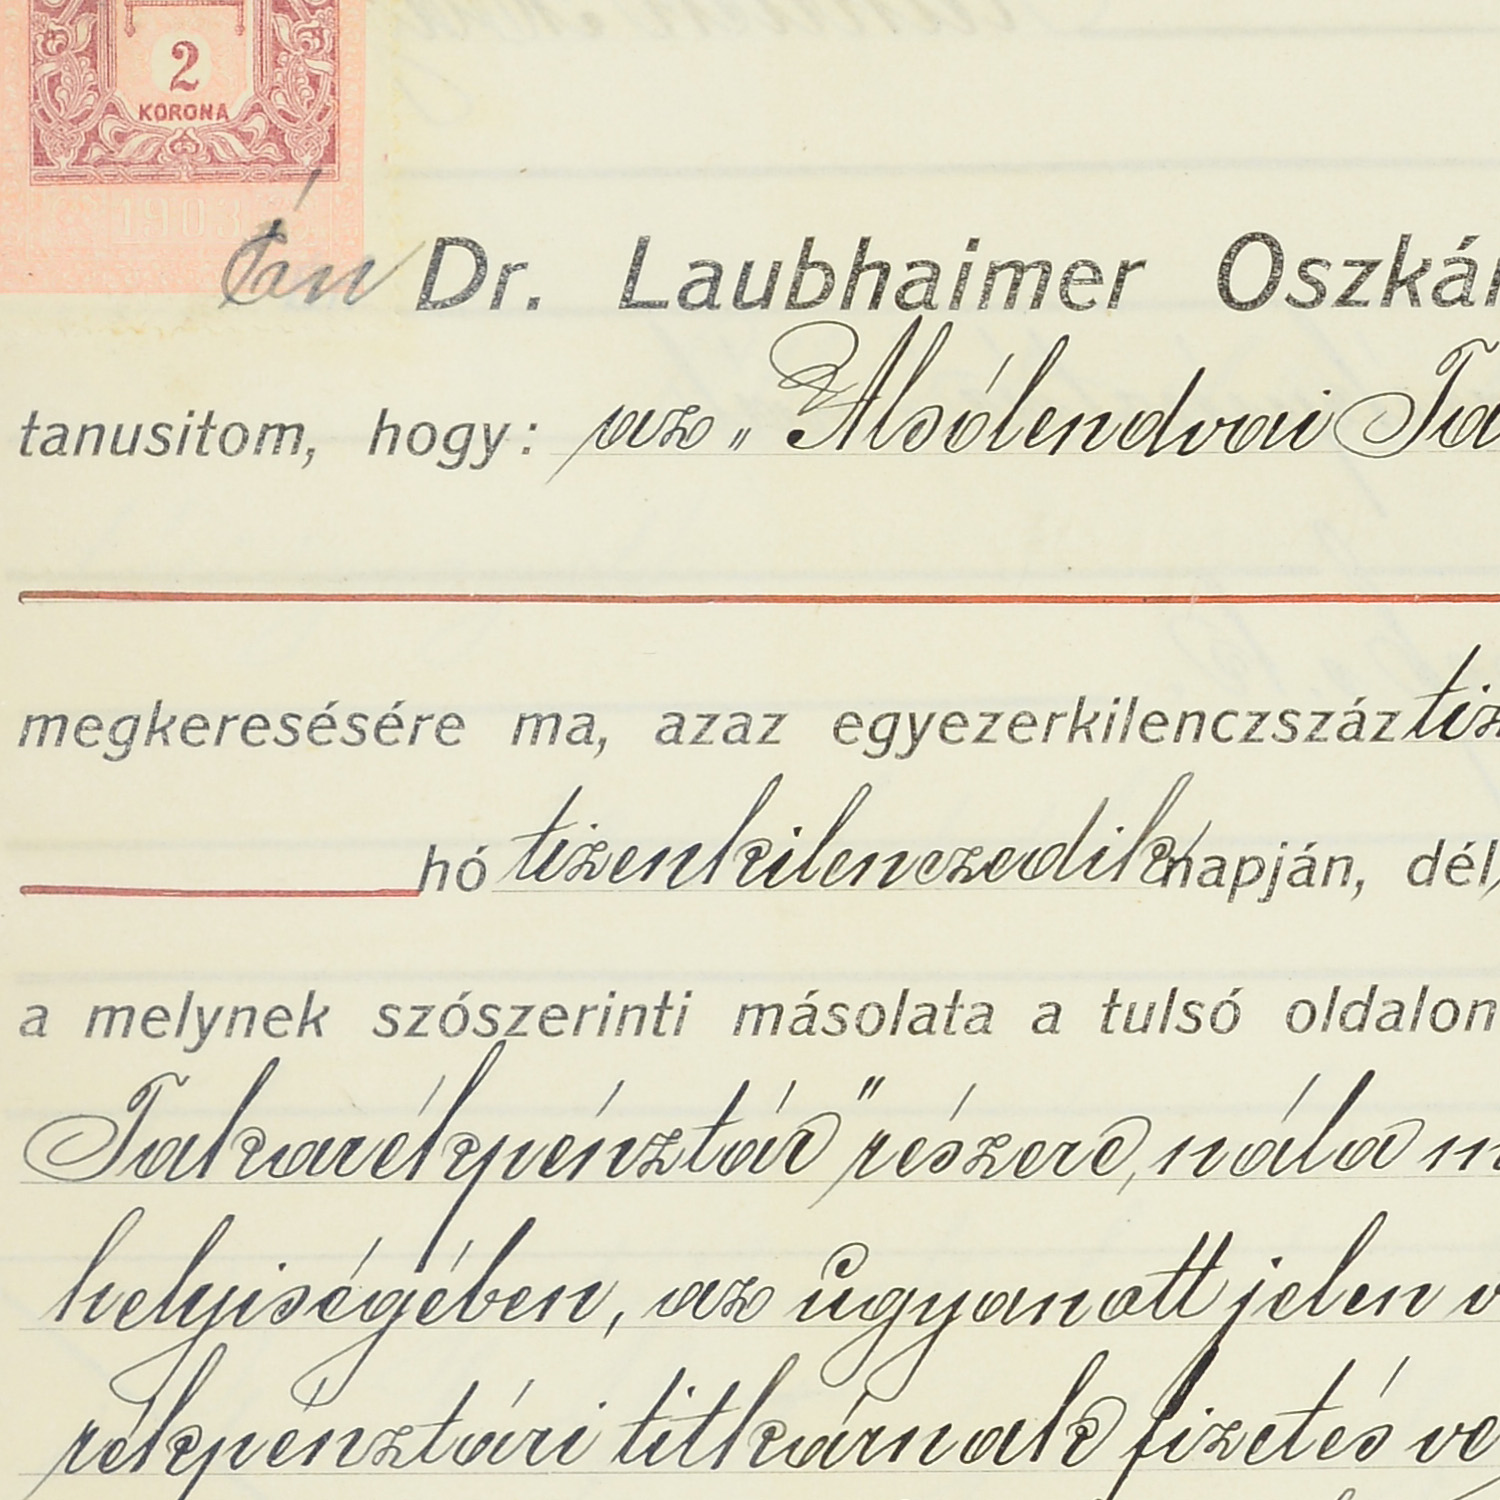 2
KORONA
1903
Én Dr. Laubhaimer Oszkár
tanusitom, hogy: az „Alsólendvai Ta
megkeresésére ma, azaz egyezerkilenczszáz tiz
hó tizenkilenczedik napján, dél
a melynek szószerinti másolata a tulsó oldalon
Takarékpénztár" részere, nála m
helyiségében, az ugyanott jelen v
rékpénztári titkárnak fizetés ve